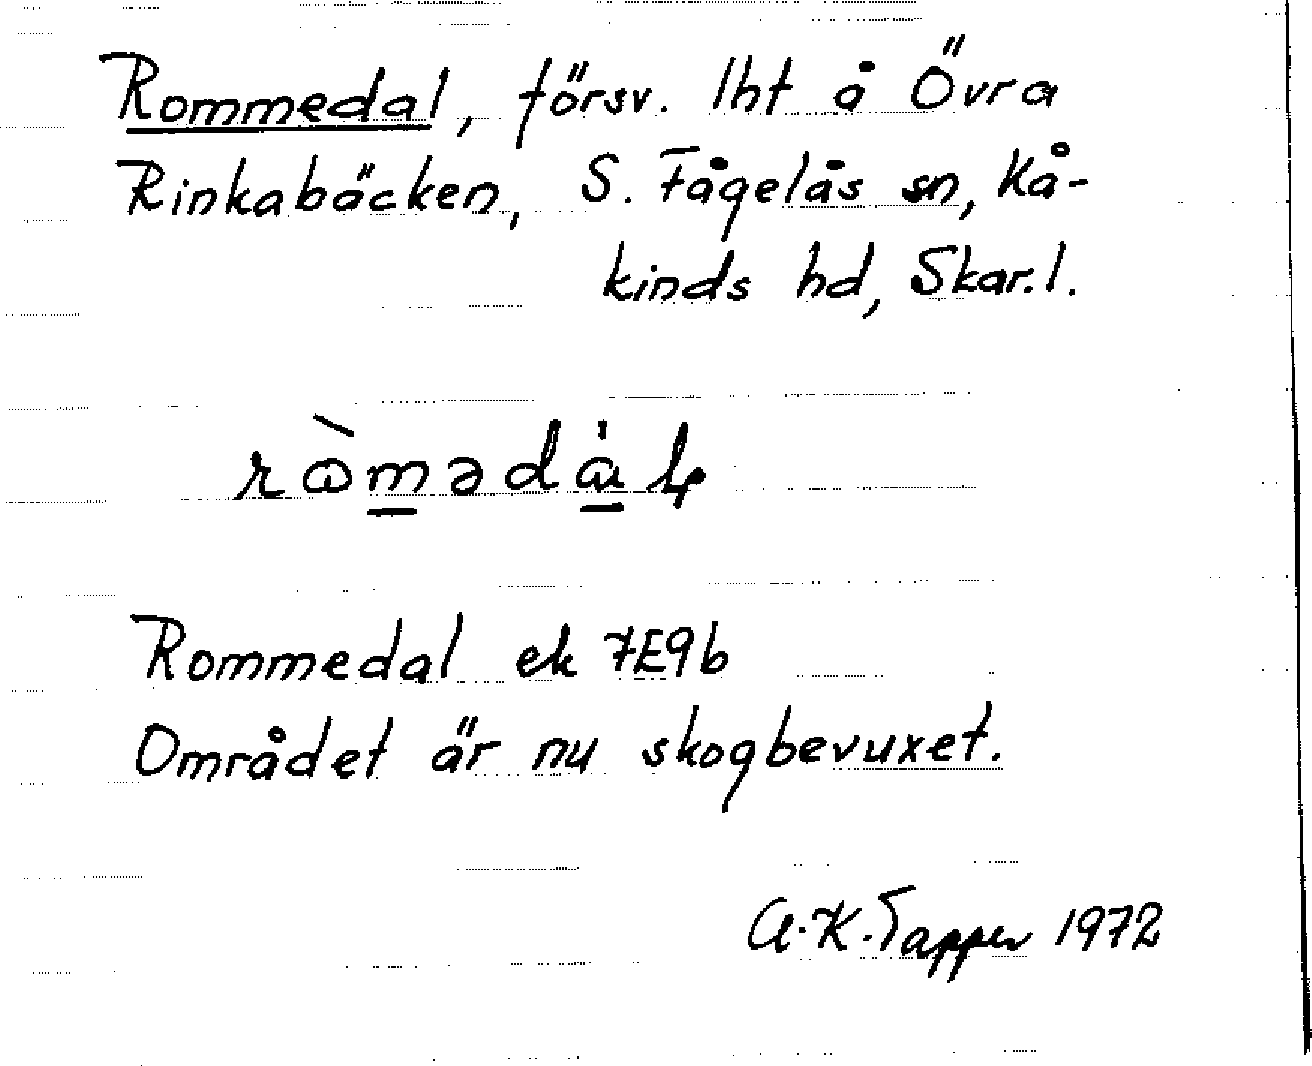 Rommedal, försv. lht å Övra
Rinkabäcken, S. Fågelås sn, Kå-
kinds hd, Skar.l.
Rommedal ek 7E9b
Området är nu skogbevuxet.
A.K. Tapper 1972